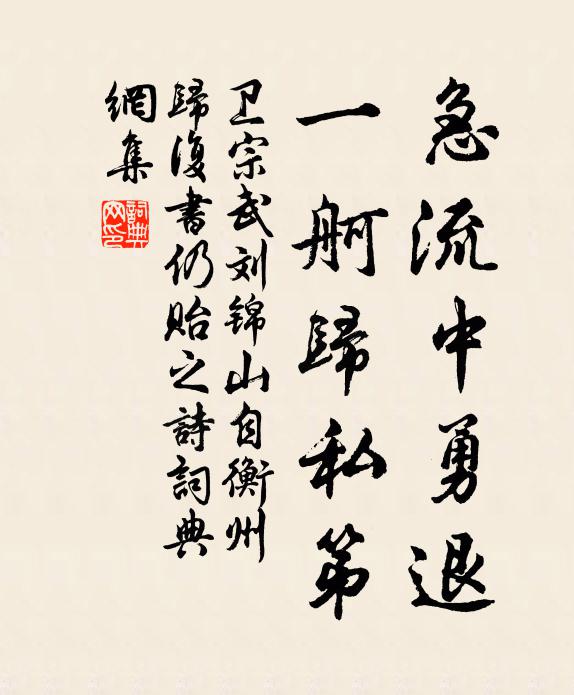 急流中勇退
一舸歸私第
卫宗武刘锦山自衡州
歸復書仍貽之詩詞典
網集
詞典網印